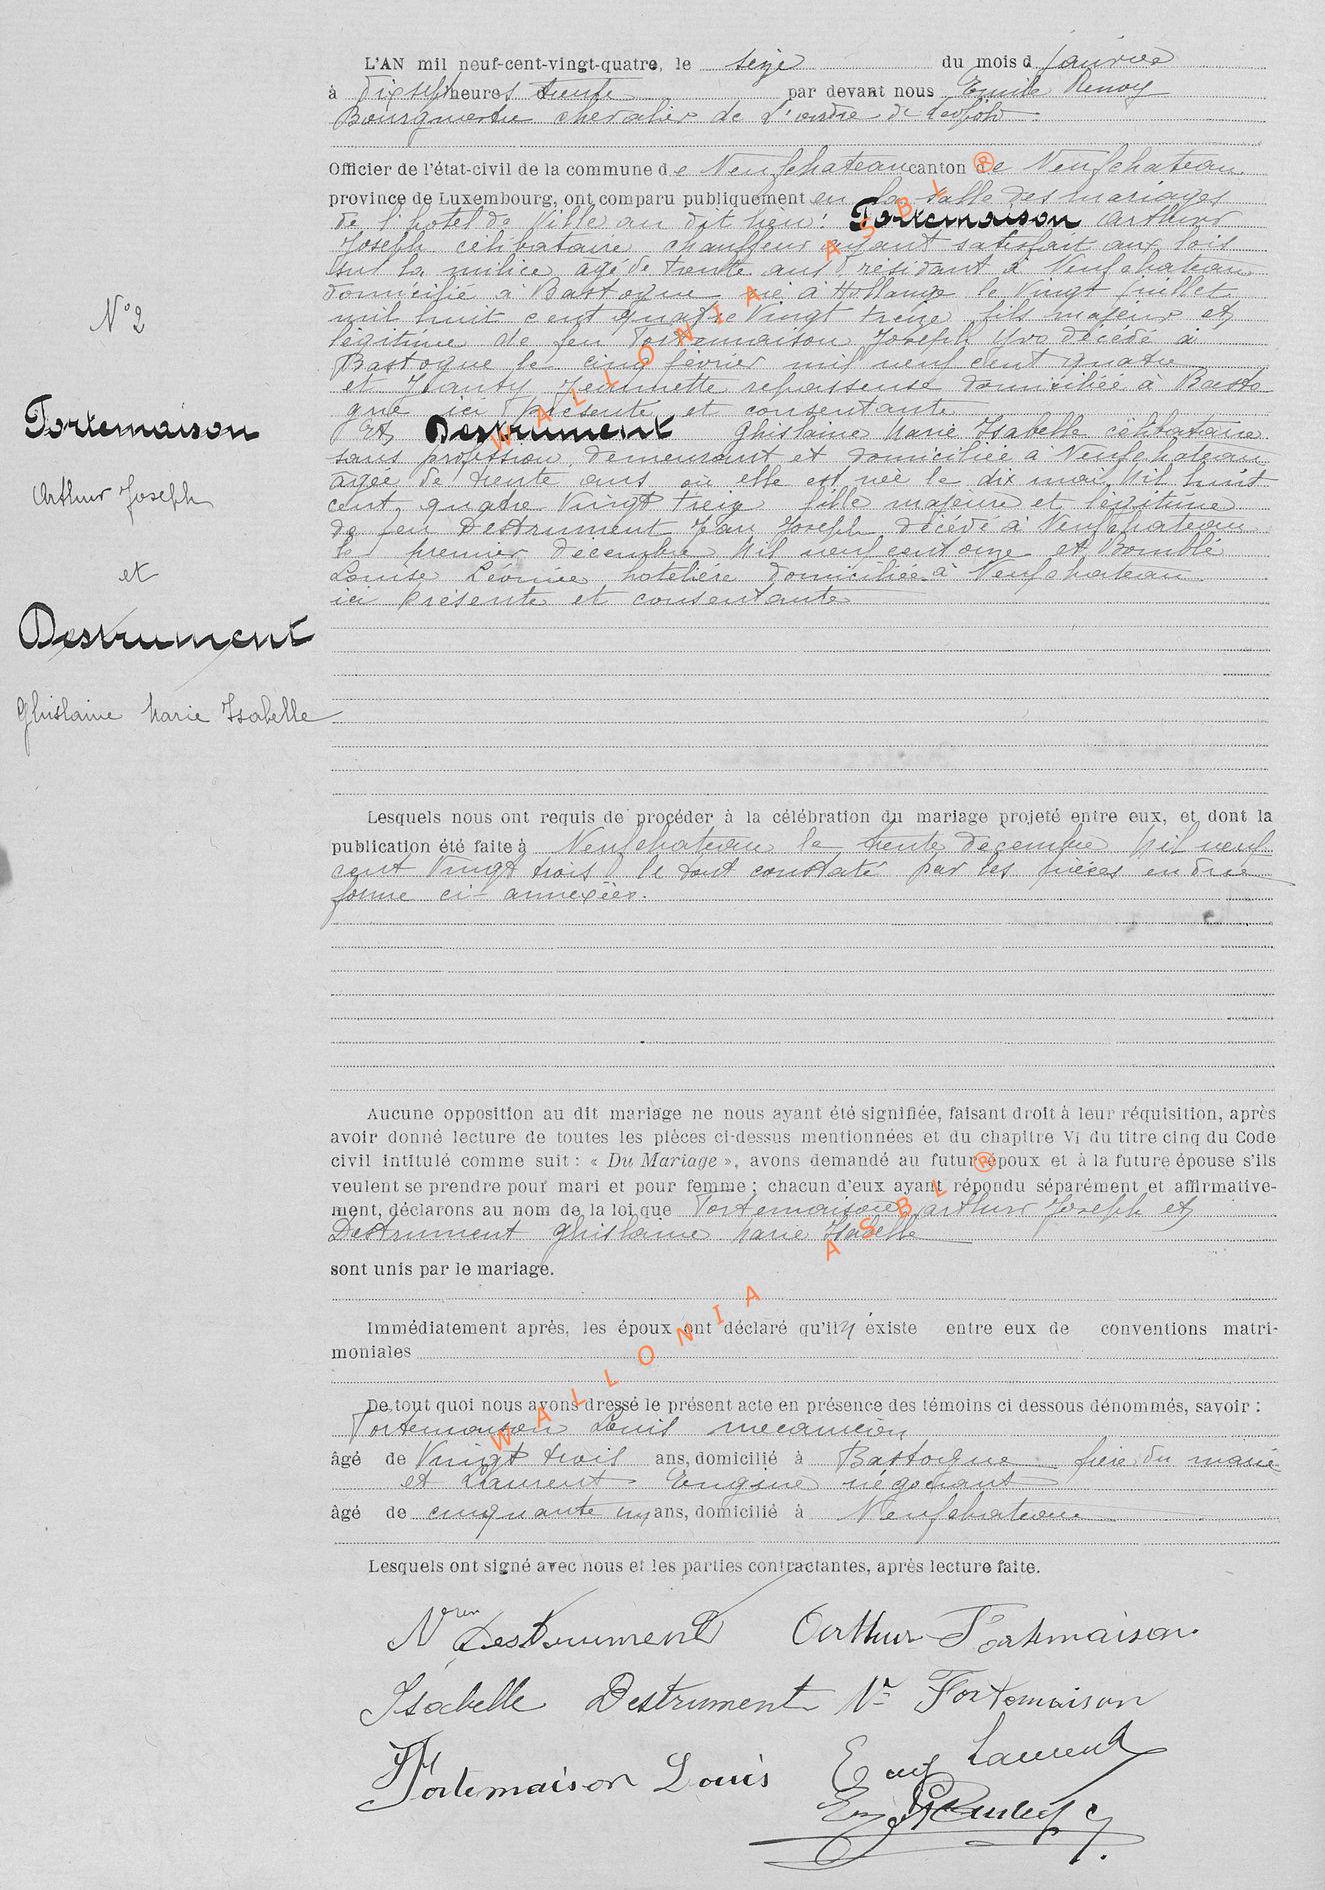 L'AN mil neuf-cent-vingt-quatre, le seize du mois d janvier
à dixsept heures trente par devant nous Emile Renoy
Bourgmestre chevalier de l'ordre de Léopold
Officier de l'état-civil de la commune de Neufchateau canton de Neufchateau
province de Luxembourg, ont comparu publiquement en la salle des mariages
de l'hotel de Ville au dit lieu : Fortemaison Arthur
Joseph célibataire chauffeur ayant satisfait aux lois
sur la milice, âgé de trente ans résidant à Neufchateau
domicilié à Bastogne né à Hollange le Vingt juillet
mil huit cent quatre Vingt treize fils majeur et
légitime de feu Fortemaison Joseph Yvo décédé à
Bastogne le cinq février mil neuf cent quatre
et Jeannette repasseuse domiciliée à Basto
gne ici présente et consentante
N° 2
Fortemaison
Arthur Joseph
et
Destrument
Ghislaine Marie Isabelle
Et Destrument Ghislaine Marie Isabelle célibataire
sans profession, demeurant et domiciliée à Neufchateau
agée de trente ans où elle est née le dix mai Mil huit
cent quatre Vingt treize fille majeure et légitime
de feu Destrument Jean Joseph décédé à Neufchateau
le premier decembre Mil neuf cent onze et Bomblé
Louise Léonie hotelière domiciliée à Neufchateau
ici présente et consentante
Lesquels nous ont requis de procéder à la célébration du mariage projeté entre eux, et dont la
publication été faite à Neufchateau le trente decembre Mil neuf
cent Vingt trois le tout constaté par les pièces en due
forme ci-annexées.
Aucune opposition au dit mariage ne nous ayant été signifiée, faisant droit à leur réquisition, après
avoir donné lecture de toutes les pièces ci-dessus mentionnées et du chapitre VI du titre cinq du Code
civil intitulé comme suit : « Du Mariage », avons demandé au futur époux et à la future épouse s'ils
veulent se prendre pour mari et pour femme ; chacun d'eux ayant répondu séparément et affirmative-
ment, déclarons au nom de la loi que Fortemaison Arthur Joseph et
Destrument Ghislaine Marie Isabelle
sont unis par le mariage.
Immédiatement après, les époux ont déclaré qu'il y éxiste entre eux de conventions matri-
moniales
De tout quoi nous avons dressé le présent acte en présence des témoins ci dessous dénommés, savoir :
Fortemaison Louis mecanicien
âgé de Vingt trois ans, domicilié à Bastogne frère du marié
et Laurent Eugène négociant
âgé de cinquante un ans, domicilié à Neufchateau
Lesquels ont signé avec nous et les parties contractantes, après lecture faite.
Destrument Arthur Fortemaison
Isabelle Destrument Ve Fortemaison
Fortemaison Louis Eug Laurent
WALLONIA ASBL ®
WALLONIA ASBL ®